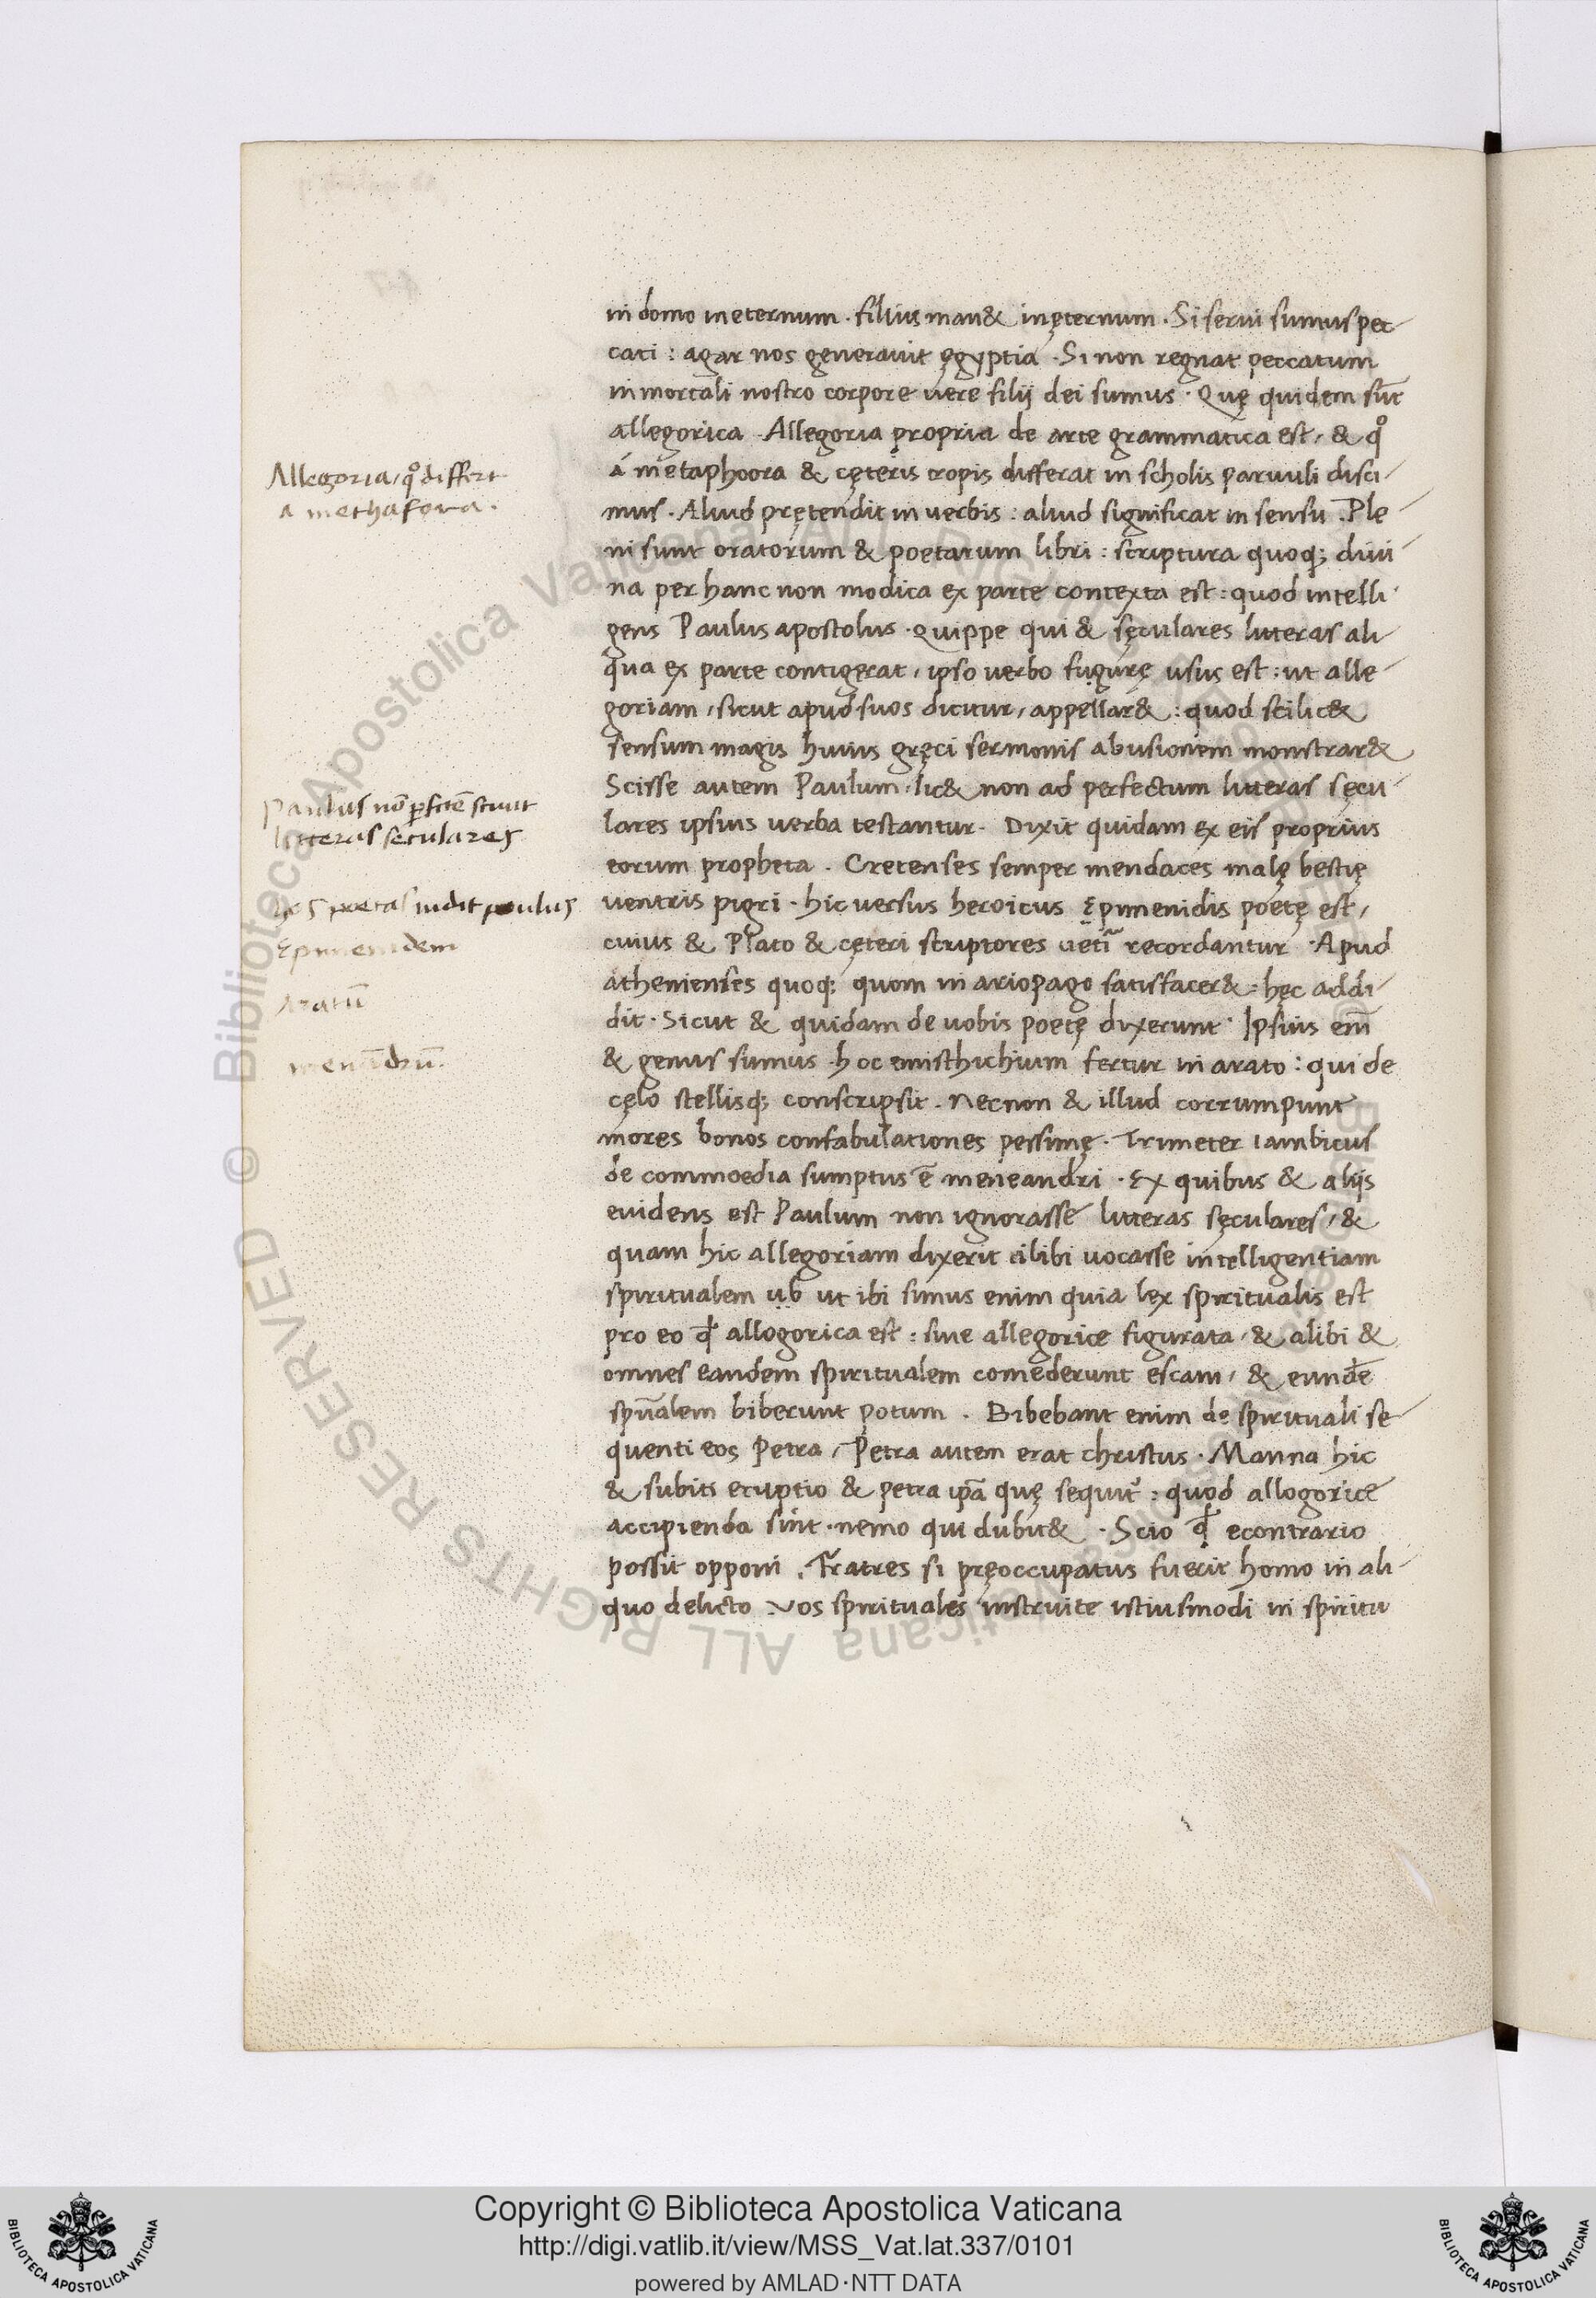 in domo in eternum . filius man& inęternum . Si serui sumus pec-
cati : agar nos generauit ęgyptia . Si non regnat peccatum
in mortali nostro corpore uere filij dei sumus . Quę quidem sūt
allegorica . Allegoria propria de arte grammatica est, & qͦ
á metaphoora & cęteris tropis differat in scholis paruuli disci-
mus . Aliud prętendit in uerbis : aliud significat in sensu . Ple-
ni sunt oratorum & poetarum libri : scriptura quoq; diui-
na per hanc non modica ex parte contexta est : quod intelli-
gens Paulus apostolus . Quippe qui & sęculares litteras ali-
qua ex parte contigerat, ipso uerbo fugurę usus est : ut alle-
goriam, sicut apud suos dicitur, appellar& : quod scilic&
sensum magis huius gręci sermonis abusionem monstrar&
Scisse autem Paulum . lic& non ad perfectum litteras sęcu-
lares ipsius uerba testantur . Dixit quidam ex eis proprius
eorum propheta . Cretenses semper mendaces malę bestię
uentris pigri . hic uersus heroicus Ępimenidis poetę est,
cuius & Plato & cęteri scriptores uetı̃ recordantur . Apud
athenienses quoq; quom in ariopago satisfacer& : hęc addi-
dit . Sicut & quidam de uobis poetę dixerunt . Ipsius em̃
& genus sumus . hoc emisthichium fertur in arato : qui de
cęlo stellisq; conscripsit . necnon & illud corrumpunt
mores bonos confabulationes pessimę . Trimeter iambicus
de commoedia sumptus ē meneandri . Ex quibus & alijs
euidens est Paulum non ignorasse litteras sęculares, &
quam hic allegoriam dixerit alibi uocasse intelligentiam
spiritualem ub ut ibi simus enim quia lex spiritualis est
pro eo ꝙ allogorica est : siue allegorice figurata, & alibi &
omnes eandem spiritualem comederunt escam, & eundē
spũalem biberunt potum . Bibebant enim de spirituali se-
quenti eos Petra, Petra autem erat christus . Manna hic
& subiti eruptio & petra ipã quę sequit᷑ : quod allogorice
accipienda sint . nemo qui dubit& . Scio ꝙ econtrario
possit opponi . Fratres si pręoccupatus fuerit homo in ali-
quo delicto . uos spirituales instruite istiusmodi in spiritu
Allegoria, qͦ differt
a methafora .
Paulus nō ꝑfectē sciuit
litteras seculares
poetas uidit paulus
Epimenidem
Aratū
menādrū .
Copyright © Biblioteca Apostolica Vaticana
http://digi.vatlib.it/view/MSS_Vat.lat.337/0101
powered by AMLAD·NTT DATA
BIBLIOTECA APOSTOLICA VATICANA
BIBLIOTECA APOSTOLICA VATICANA
© Biblioteca Apostolica Vaticana ALL RIGHTS RESERVED